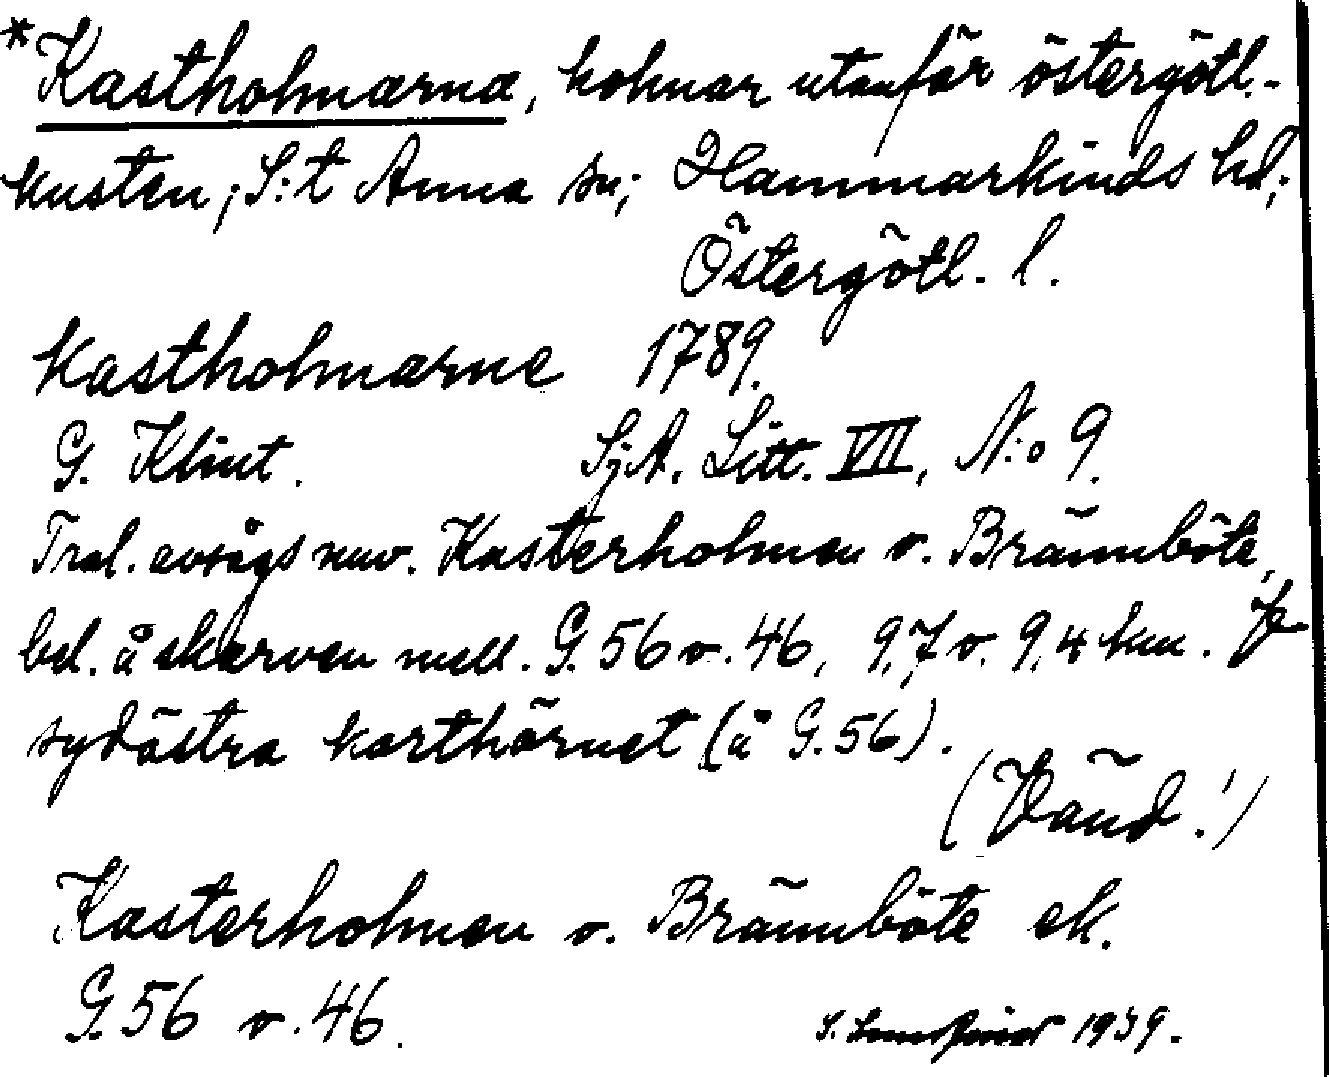 *Kastholmarna, holmar utanför östergötl.-
kusten; S:t Anna sn; Hammarkinds hd;
Östergötl. l.
Kastholmarne 1789.
G. Klint. SjA. Litt. VII, N:o 9.
Trol. avsågs nuv. Kasterholmen o. Brännböte,
bel. å skarven mell. G. 56 o. 46, 9,7 o. 9,4 km. fr.
sydöstra korthörnet (å G. 56).
(Vänd!)
Kasterholmen o. Brännböte ek.
G. 56 o. 46.
S. 1939.